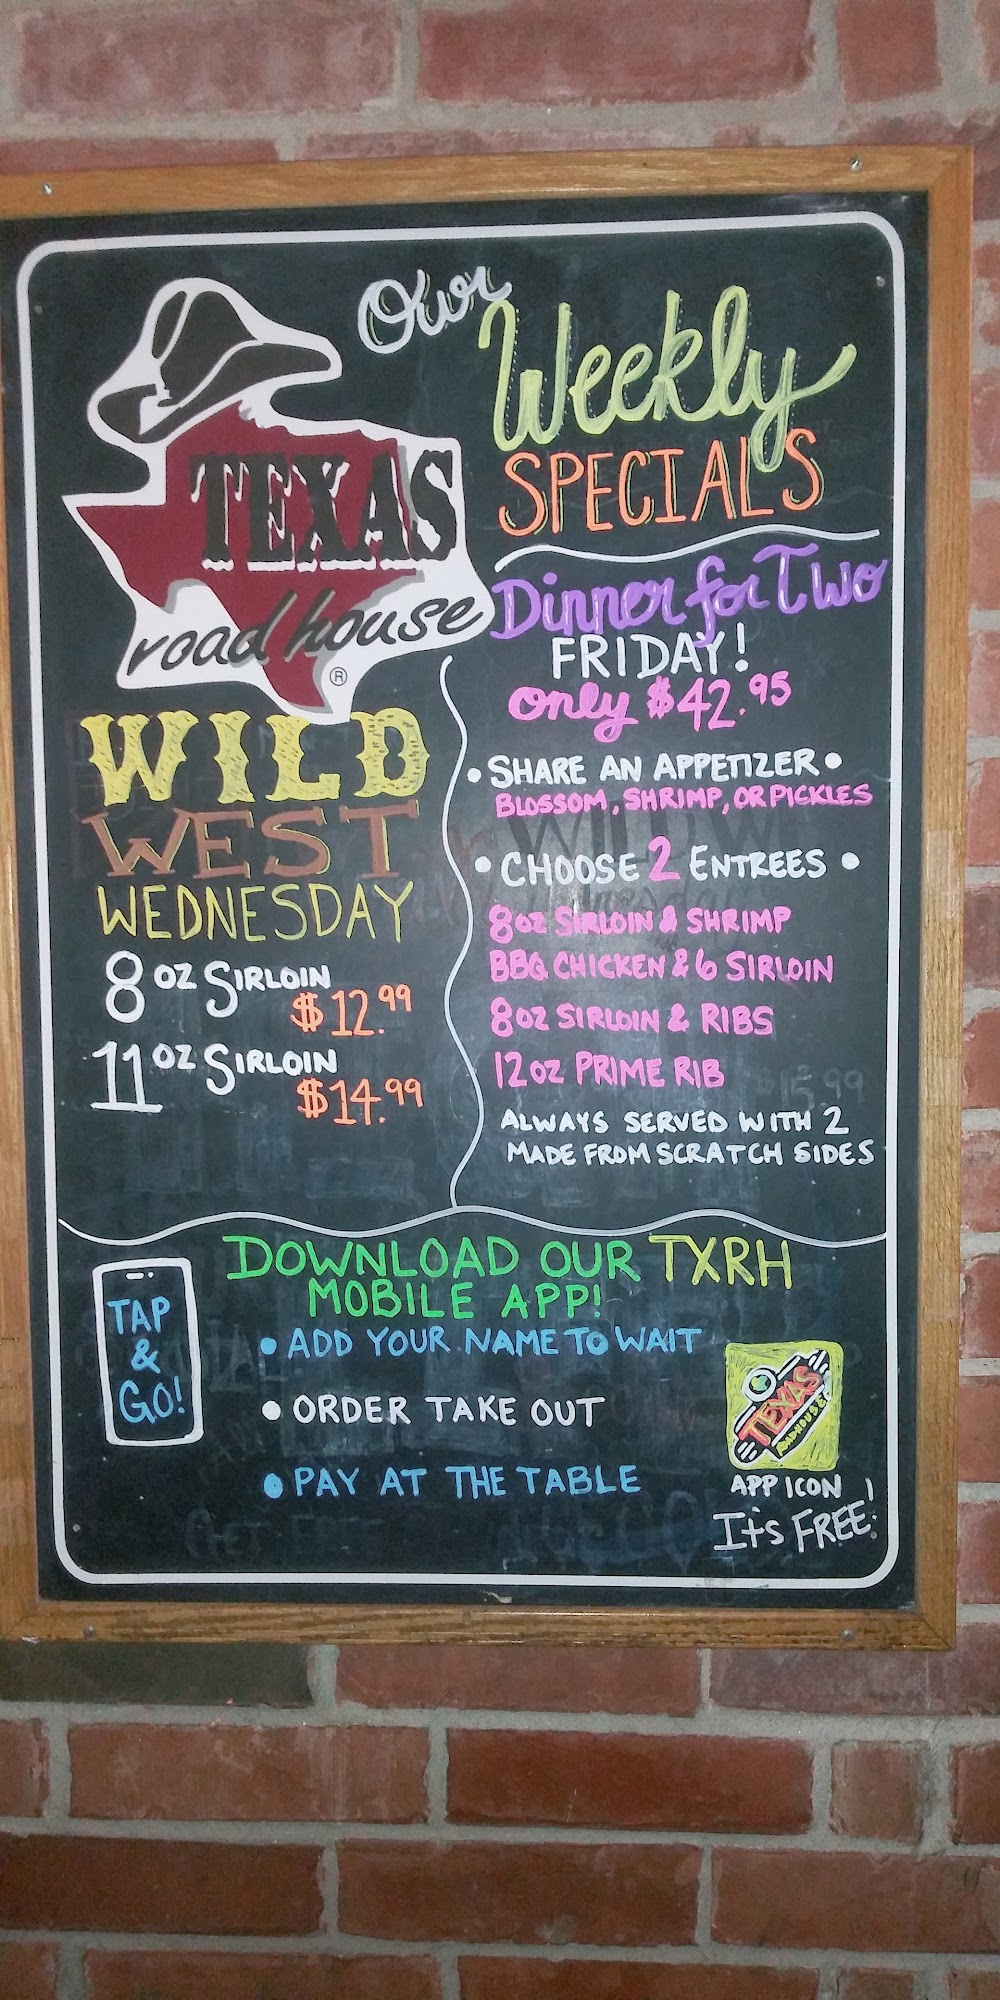 Our
Weekly
SPECIALS
TEXAS
roadhouse
®
WILD
WEST
WEDNESDAY
8 OZ SIRLOIN
$12.99
11 OZ SIRLOIN
$14.99
Dinner for Two
FRIDAY!
only $42.95
• SHARE AN APPETIZER •
BLOSSOM, SHRIMP, OR PICKLES
• CHOOSE 2 ENTREES •
8OZ SIRLOIN & SHRIMP
BBQ CHICKEN & 6 SIRLOIN
8OZ SIRLOIN & RIBS
12OZ PRIME RIB
ALWAYS SERVED WITH 2
MADE FROM SCRATCH SIDES
TAP
&
GO!
DOWNLOAD OUR TXRH
MOBILE APP!
• ADD YOUR NAME TO WAIT
• ORDER TAKE OUT
• PAY AT THE TABLE
TEXAS
ROADHOUSE
APP ICON
It's FREE!